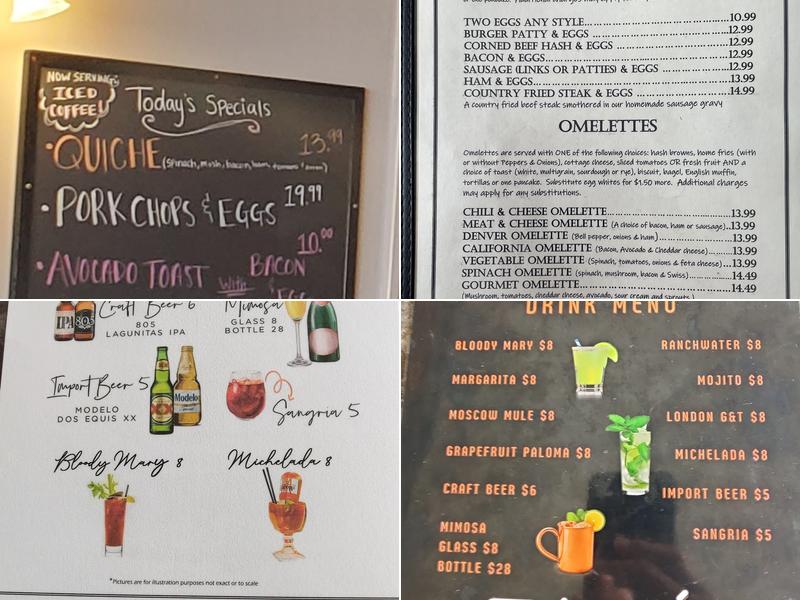 NOW SERVING
ICED
COFFEE!
Today's Specials
• QUICHE 13.99
(Spinach, mush, bacon, ham, tomatoes & onion)
• PORK CHOPS & EGGS 19.99
• AVOCADO TOAST With BACON 10.00
TWO EGGS ANY STYLE 10.99
BURGER PATTY & EGGS 12.99
CORNED BEEF HASH & EGGS 12.99
BACON & EGGS 12.99
SAUSAGE (LINKS OR PATTIES) & EGGS 12.99
HAM & EGGS 13.99
COUNTRY FRIED STEAK & EGGS 14.99
A country fried beef steak smothered in our homemade sausage gravy
OMELETTES
Omelettes are served with ONE of the following choices: hash browns, home fries (with
or without Peppers & Onions), cottage cheese, sliced tomatoes OR fresh fruit AND a
choice of toast (white, multigrain, sourdough or rye), biscuit, bagel, English muffin,
tortillas or one pancake. Substitute egg whites for $1.50 more. Additional charges
may apply for any substitutions.
CHILI & CHEESE OMELETTE 13.99
MEAT & CHEESE OMELETTE (A choice of bacon, ham or sausage) 13.99
DENVER OMELETTE (Bell pepper, onions & ham) 13.99
CALIFORNIA OMELETTE (Bacon, Avocado & Cheddar cheese) 13.99
VEGETABLE OMELETTE (Spinach, tomatoes, onions & feta cheese) 13.99
SPINACH OMELETTE (spinach, mushroom, bacon & Swiss) 14.49
GOURMET OMELETTE 14.49
(Mushroom, tomatoes, cheddar cheese, avocado, sour cream and sprouts)
Craft Beer 6
805
LAGUNITAS IPA
IPA
805
Mimosa
GLASS 8
BOTTLE 28
Import Beer 5
MODELO
DOS EQUIS XX
Modelo
Sangria 5
Bloody Mary 8
Michelada 8
*Pictures are for illustration purposes not exact or to scale
DRINK MENU
BLOODY MARY $8
MARGARITA $8
MOSCOW MULE $8
GRAPEFRUIT PALOMA $8
CRAFT BEER $6
MIMOSA
GLASS $8
BOTTLE $28
RANCHWATER $8
MOJITO $8
LONDON G&T $8
MICHELADA $8
IMPORT BEER $5
SANGRIA $5